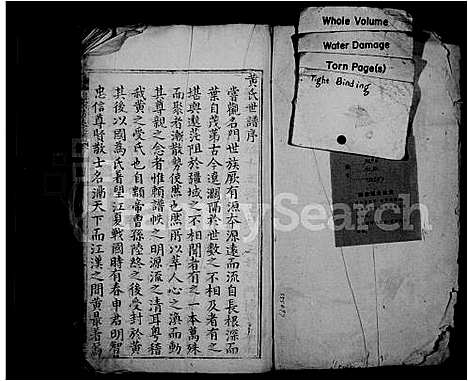 Whole Volume
Water Damage
Torn Page(s)
Tight Binding
黄氏世譜序
嘗觀名門世族厥有淵本源遠而流自長根深而
葉自茂第古今遼濶隔於世數之不相及者有之
堪輿遼茫阻於疆域之不相聞者有之一本萬殊
而聚者漸散勢使然也然所以萃人心之渙而動
其尊親之念者惟頼譜帙之明源流之清耳粤稽
我黄之受氏也自顓帝曹孫陸終之後受封於黄
其後以國為氏著望江夏戰國時有春申君明智
忠信尊時敬士名滿天下而江漢之間黄最者焉
MySearch